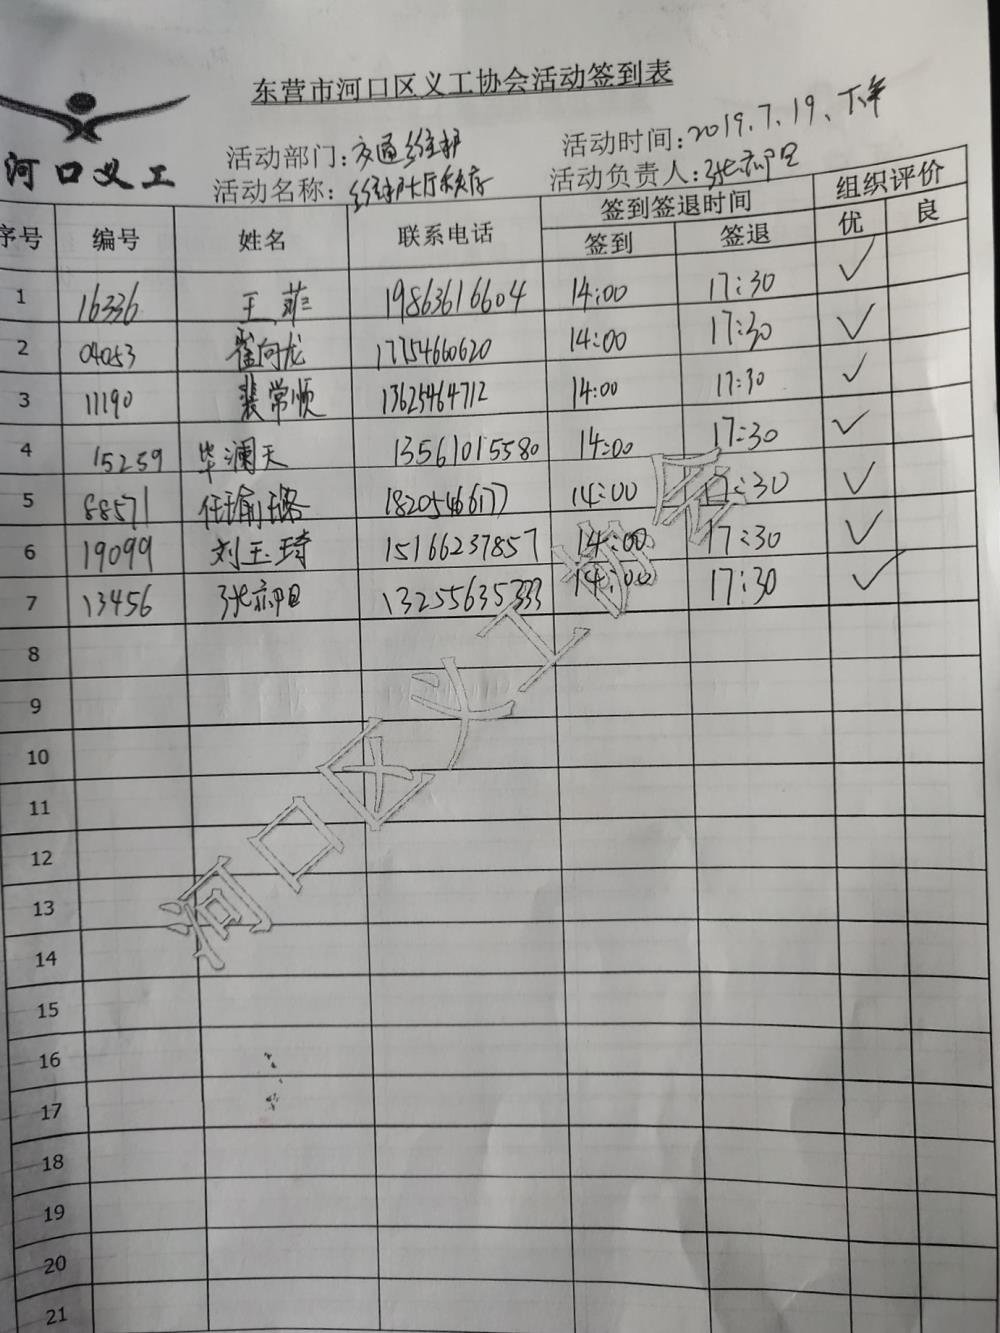 东营市河口区义工协会活动签到表
河口义工
活动部门：交通维护 活动时间：2019.7.19、下午
活动名称：维护大厅秩序 活动负责人：张亦明
序号 编号 姓名 联系电话 签到签退时间 组织评价
签到 签退 优 良
1 16336 王菲 19863616604 14:00 17:30 ✓
2 04053 崔向龙 17754660620 14:00 17:30 ✓
3 11190 裴常顺 13625464712 14:00 17:30 ✓
4 15259 毕澜天 13561015580 14:00 17:30 ✓
5 88571 任瑜璐 18205466177 14:00 17:30 ✓
6 19099 刘玉琦 15166237857 14:00 17:30 ✓
7 13456 15255635333 14:00 17:30 ✓
8
9
10
11
12
13
14
15
16
17
18
19
20
21
河口区义工